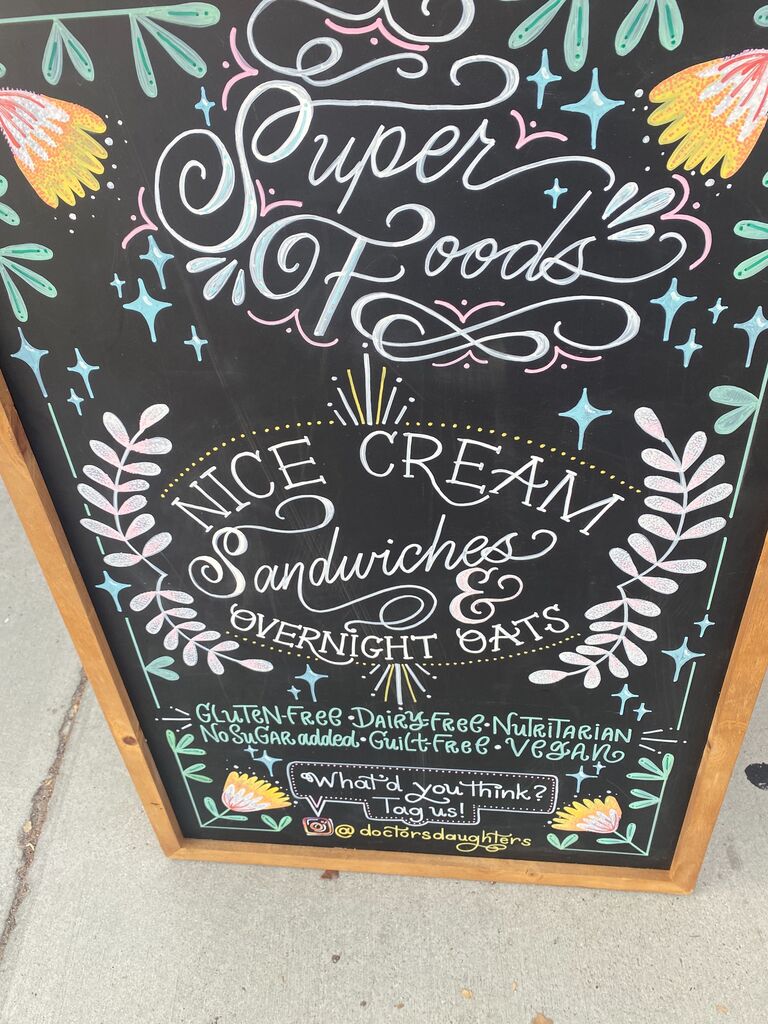 Super
Foods
NICE CREAM
Sandwiches
&
OVERNIGHT OATS
GLUTEN-FREE • DAIRY-FREE • NUTRITARIAN
NO SUGAR added • GUILT-FREE • VEGAN
What'd you think?
Tag us!
@doctorsdaughters